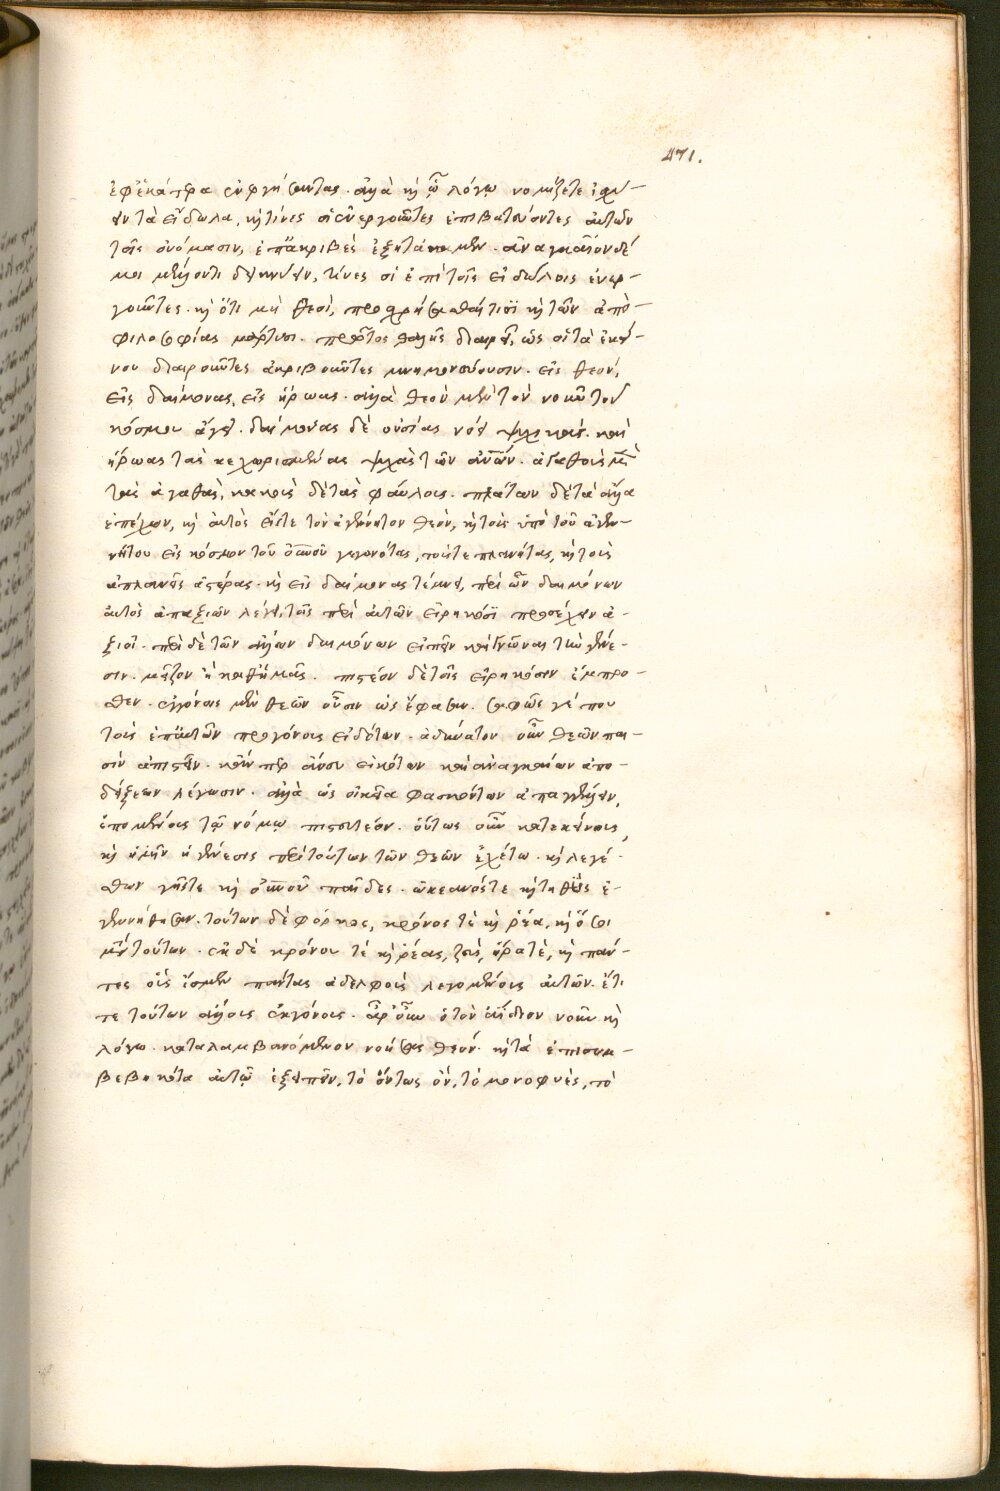 471.
ἐφ' ἑκάτερα ἐνεργήσαντας. ἀλλὰ καὶ ᾧ λόγῳ νομίζετε ἰσχύ-
ειν τὰ εἴδωλα, καὶ τίνες οἱ ἐνεργοῦντες ἐπιβατεύοντες αὐτῶν
τοῖς ὀνόμασιν, ἐπ' ἀκριβὲς ἐξετάσομεν. ἀναγκαῖον δέ
μοι μέλλοντι δεικνύειν, τίνες οἱ ἐπὶ τοῖς εἰδώλοις ἐνερ-
γοῦντες. καὶ ὅτι μὴ θεοί, προσχρήσασθαί τισι καὶ τῶν ἀπὸ
φιλοσοφίας μάρτυσι. πρῶτος θαλῆς διαιρεῖ, ὡς οἱ τὰ ἐκεί-
νου διαιροῦντες ἀκριβοῦντες μνημονεύουσιν. εἰς θεόν,
εἰς δαίμονας, εἰς ἥρωας. ἀλλὰ θεὸν μὲν τὸν νοῦν τοῦ
κόσμου ἄγει. δαίμονας δὲ οὐσίας νοεῖ ψυχικάς. καὶ
ἥρωας τὰς κεχωρισμένας ψυχὰς τῶν ἀνῶν. ἀγαθοὺς μὲν
τὰς ἀγαθάς, κακοὺς δὲ τὰς φαύλους. πλάτων δὲ τὰ ἄλλα
ἐπέχων, καὶ αὐτὸς εἴς τε τὸν ἀγένητον θεόν, καὶ τοὺς ὑπὸ τοῦ ἀγεν-
νήτου εἰς κόσμον τοῦ οὐνοῦ γεγονότας, τούς τε πλανήτας, καὶ τοὺς
ἀπλανεῖς ἀστέρας. καὶ εἰς δαίμονας τέμνει, περὶ ὧν δαιμόνων
αὐτὸς ἀπαξιῶν λέγει, τοῖς περὶ αὐτῶν εἰρηκόσι προσέχειν ἀ-
ξιοῖ. περὶ δὲ τῶν ἄλλων δαιμόνων εἰπεῖν καὶ γνῶναι τὴν γένε-
σιν. μεῖζον ἢ καθ' ἡμᾶς. πιστέον δὲ τοῖς εἰρηκόσιν ἔμπρο-
σθεν. ἐγγόνοις μὲν θεῶν οὖσιν ὡς ἔφασαν. σαφῶς γέ που
τοὺς ἑαυτῶν προγόνους εἰδότων. ἀδύνατον οὖν θεῶν παι-
σὶν ἀπιστεῖν. κἄν περ ἄνευ εἰκότων καὶ ἀναγκαίων ἀπο-
δείξεων λέγωσιν. ἀλλὰ ὡς οἰκεῖα φασκόντων ἀπαγγέλλειν,
ἑπομένοις τῷ νόμῳ πιστευτέον. οὕτως οὖν κατ' ἐκείνους,
καὶ ἡμῖν ἡ γένεσις περὶ τούτων τῶν θεῶν ἐχέτω. καὶ λεγέ-
σθω γῆς τε καὶ οὐνοῦ παῖδες. ὠκεανός τε καὶ τηθὺς ἐ-
γεννήθησαν. τούτων δὲ φόρκος, κρόνος τὲ καὶ ῥέα, καὶ ὅσοι
μετὰ τούτων. ἐκ δὲ κρόνου τὲ καὶ ῥέας, ζεύς, ἥρα τὲ, καὶ πάν-
τες οὓς ἴσμεν πάντας ἀδελφοὺς λεγομένους αὐτῶν. ἔτι
τε τούτων ἄλλους ἐκγόνους. ἆρ' οὖν ὁ τὸν ἀΐδιον νοῦν καὶ
λόγῳ. καταλαμβανόμενον νοήσας θεόν. καὶ τὰ ἐπισυμ-
βεβηκότα αὐτῷ ἐξειπών, τὸ ὄντως ὄν, τὸ μονοφυές, τὸ